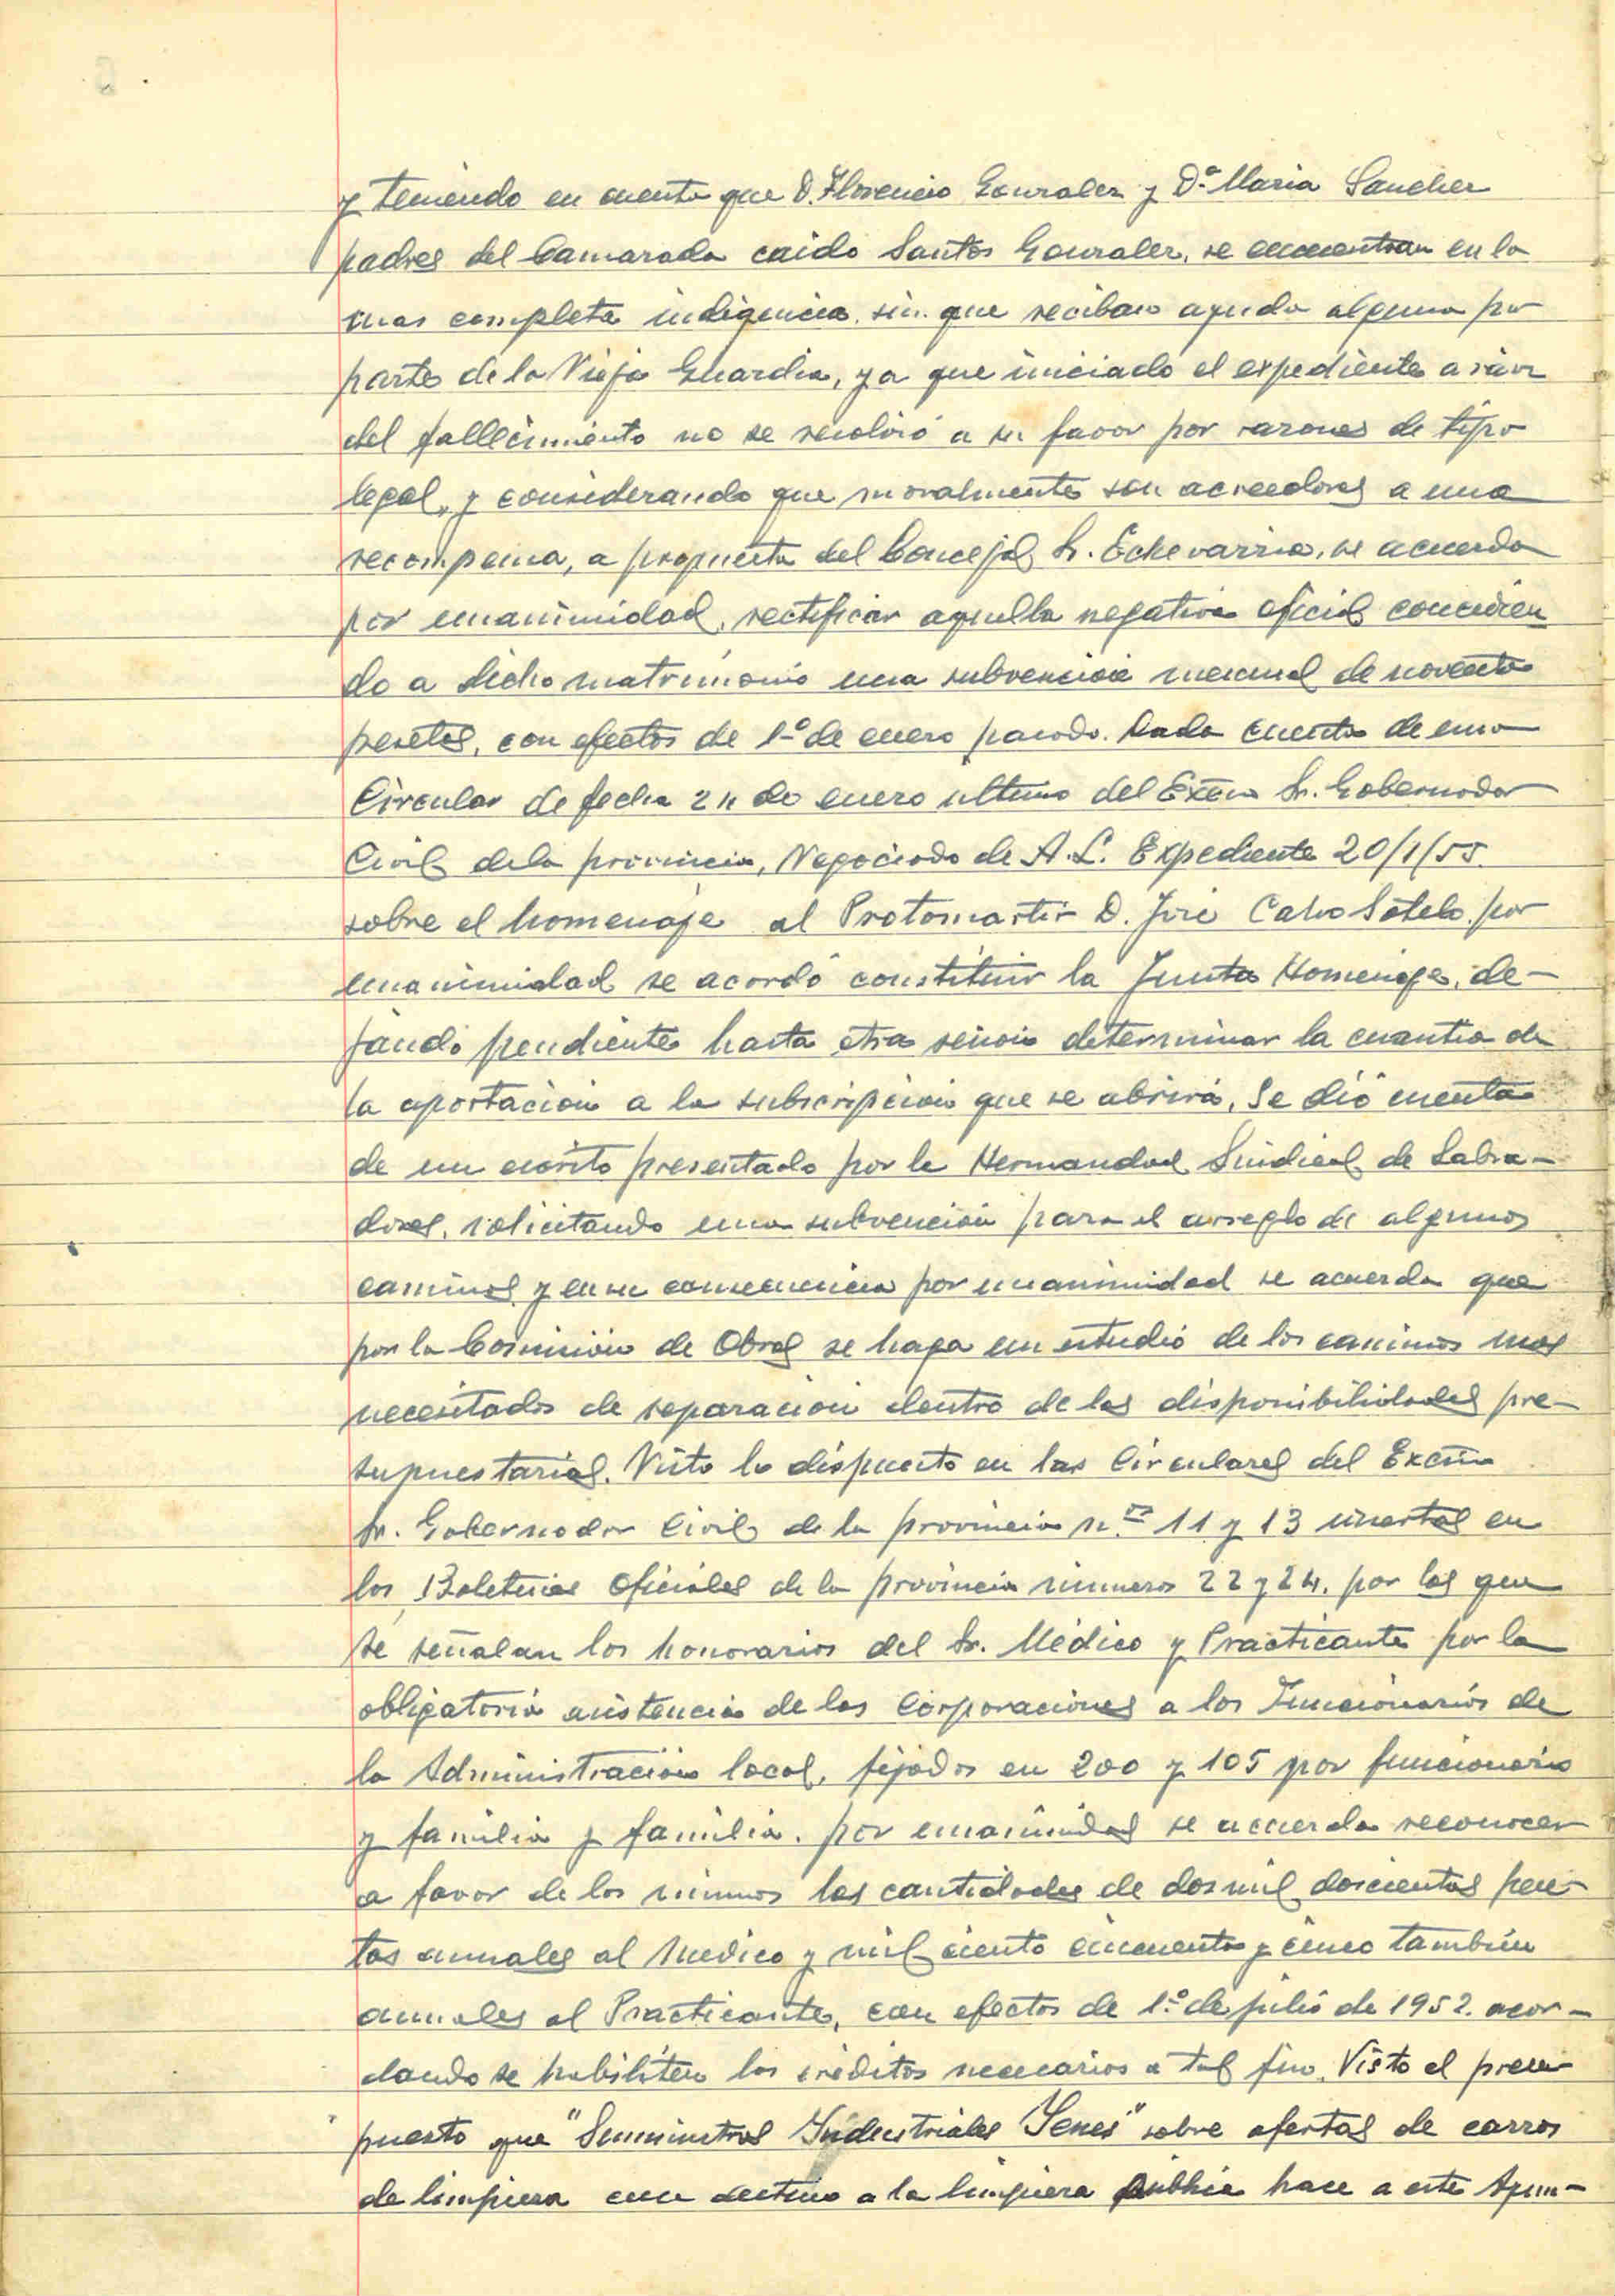 y teniendo en cuenta que D. Florencio Gonzalez y Dª Maria Sanchez
padres del Camarada caido Santos Gonzalez, se encuentran en la
mas completa indigencia sin que reciban ayuda alguna por
parte de la Vieja Guardia, ya que iniciado el expediente a raiz
del fallecimiento no se resolvió a su favor por razones de tipo
legal, y considerando que moralmente son acreedores a una
recompensa, a propuesta del Concejal Sr. Echevarria, se acuerda
por unanimidad, rectificar aquella negativa oficial concedien
do a dicho matrimonio una subvencion mensual de noventa
pesetas, con efectos de 1º de enero pasado. Dada cuenta de una
Circular de fecha 24 de enero ultimo del Excmo Sr. Gobernador
Civil de la provincia, Negociado de A.L. Expediente 20/1/55.
sobre el homenaje al Protomartir D. José Calvo Sotelo, por
unanimidad se acordó constituir la Junta Homenaje, de-
jando pendiente hasta otra sesion determinar la cuantia de
la aportacion a la subscripcion que se abrirá. Se dió cuenta
de un escrito presentado por la Hermandad Sindical de Labra-
dores, solicitando una subvencion para el arreglo de algunos
caminos y en su consecuencia por unanimidad se acuerda que
por la Comision de Obras se haga un estudio de los caminos mas
necesitados de reparacion dentro de las disponibilidades pre-
supuestarias. Visto lo dispuesto en las Circulares del Excmo
Sr. Gobernador Civil de la provincia n.os 11 y 13 insertas en
los Boletines Oficiales de la provincia números 22 y 24, por las que
se señalan los honorarios del Sr. Médico y Practicante por la
obligatoria asistencia de las Corporaciones a los Funcionarios de
la Administracion local, fijados en 200 y 105 por funcionario
y familia y familia. por unanimidad se acuerda reconocer
a favor de los mismos las cantidades de dos mil doscientas pese-
tas anuales al Medico y mil ciento cincuenta y cinco tambien
anuales al Practicante, con efectos de 1º de julio de 1952. acor-
dando se habiliten los créditos necesarios a tal fin. Visto el presu
puesto que "Suministros Industriales Senes" sobre ofertas de carros
de limpieza con destino a la limpieza pública hace a este Ayun-